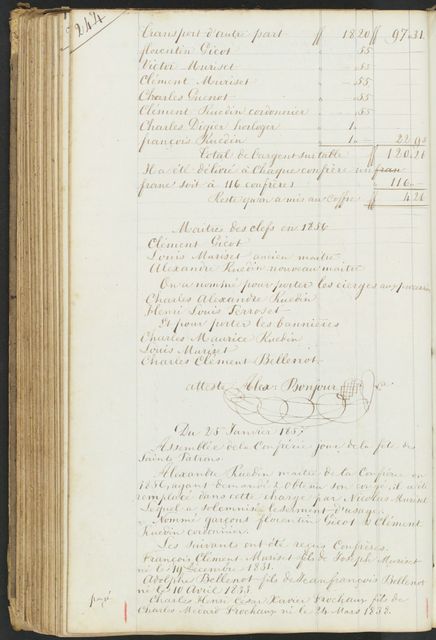 244
Transport d'autre part ʃʃ 18.20 ʃʃ 97.31
florentin Gicot " - .55
Victor Muriset " - .55
Clément Muriset - .55
Charles Guenot " - .55
Clément Ruedin cordonnier - .55
Charles Digier horloger " 1 "
françois Ruedin " 1 " - 22.90
Total de l'argent sur table ʃʃ 120.21
Il a été délivré à chaque confrère un fran
franc soit à 116 confrères " 116 "
Reste qu'on a mis au coffre ʃʃ 4.26
Maitres des clefs en 1856
Clément Gicot
Louis Muriset ancien maitre
Alexandre Ruedin nouveau maitre
On a nommé pour porter les cierges aux processions
Charles Alexandre Ruedin
Henri Louis Perroset
Et pour porter les bannières
Charles Maurice Ruedin
Louis Muriset
Charles Clément Bellenot
atteste Alex. Bonjour
Du 25 Janvier 1857
Assemblée de la Confrérie jour de la fête de
Saints Patrons.
Alexandre Ruedin maitre de la Confrérie en
1856, ayant demandé & obtenu son congé, il a été
remplacé dans cette charge par Nicolas Muriset
lequel a solemnisé le serment d'usage.
Nommé garçons florentin Gicot & Clément
Ruedin cordonnier.
Les suivants ont été reçus Confrères.
François Clément Muriset fils de Joseph Muriset
né le 19 Décembre 1831.
Adolphe Bellenot fils de Jean françois Bellenot
né le 10 Avril 1833.
payé Charles Henri César Xavier Frochaux fils de
Charles Médard Frochaux né le 24 Mars 1838.